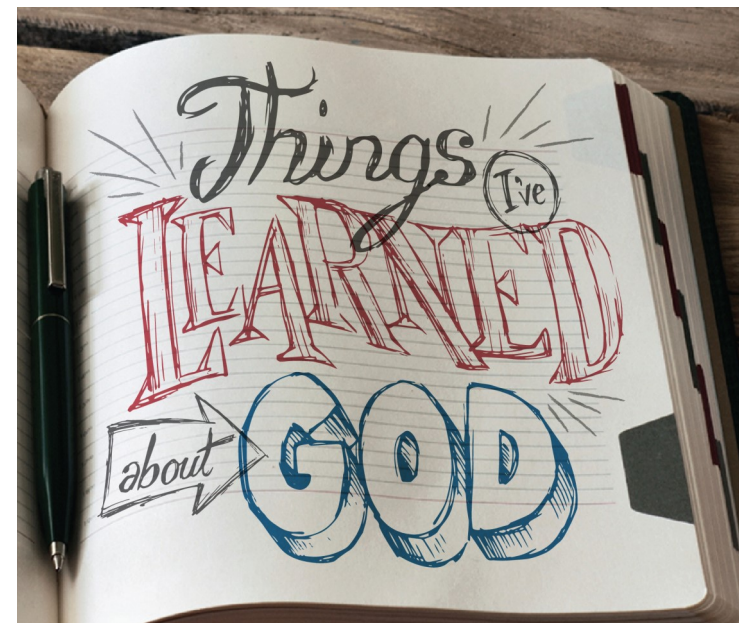 Things
I've
LEARNED
about
GOD